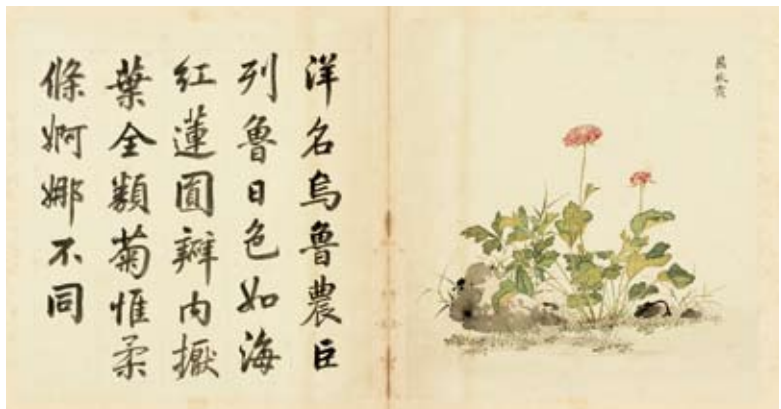 秋霞
洋名烏魯農臣
列魯日色如海
紅蓮圓瓣內擫
葉全類菊惟柔
條婀娜不同